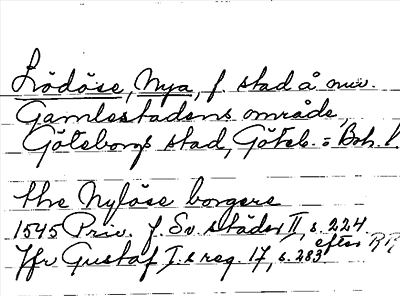 Lödöse, Nya, f. stad å nuv.
Gamlestadens område,
Göteborgs stad, Göteb. = Boh. l.
the Nylöse borgere
1545 Priv. f. Sv. städer II, s. 224.
efter RR
Jfr Gustaf I:s reg. 17, s. 283